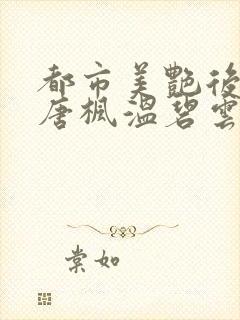 都市美艷後
唐楓溫碧雲
棠如